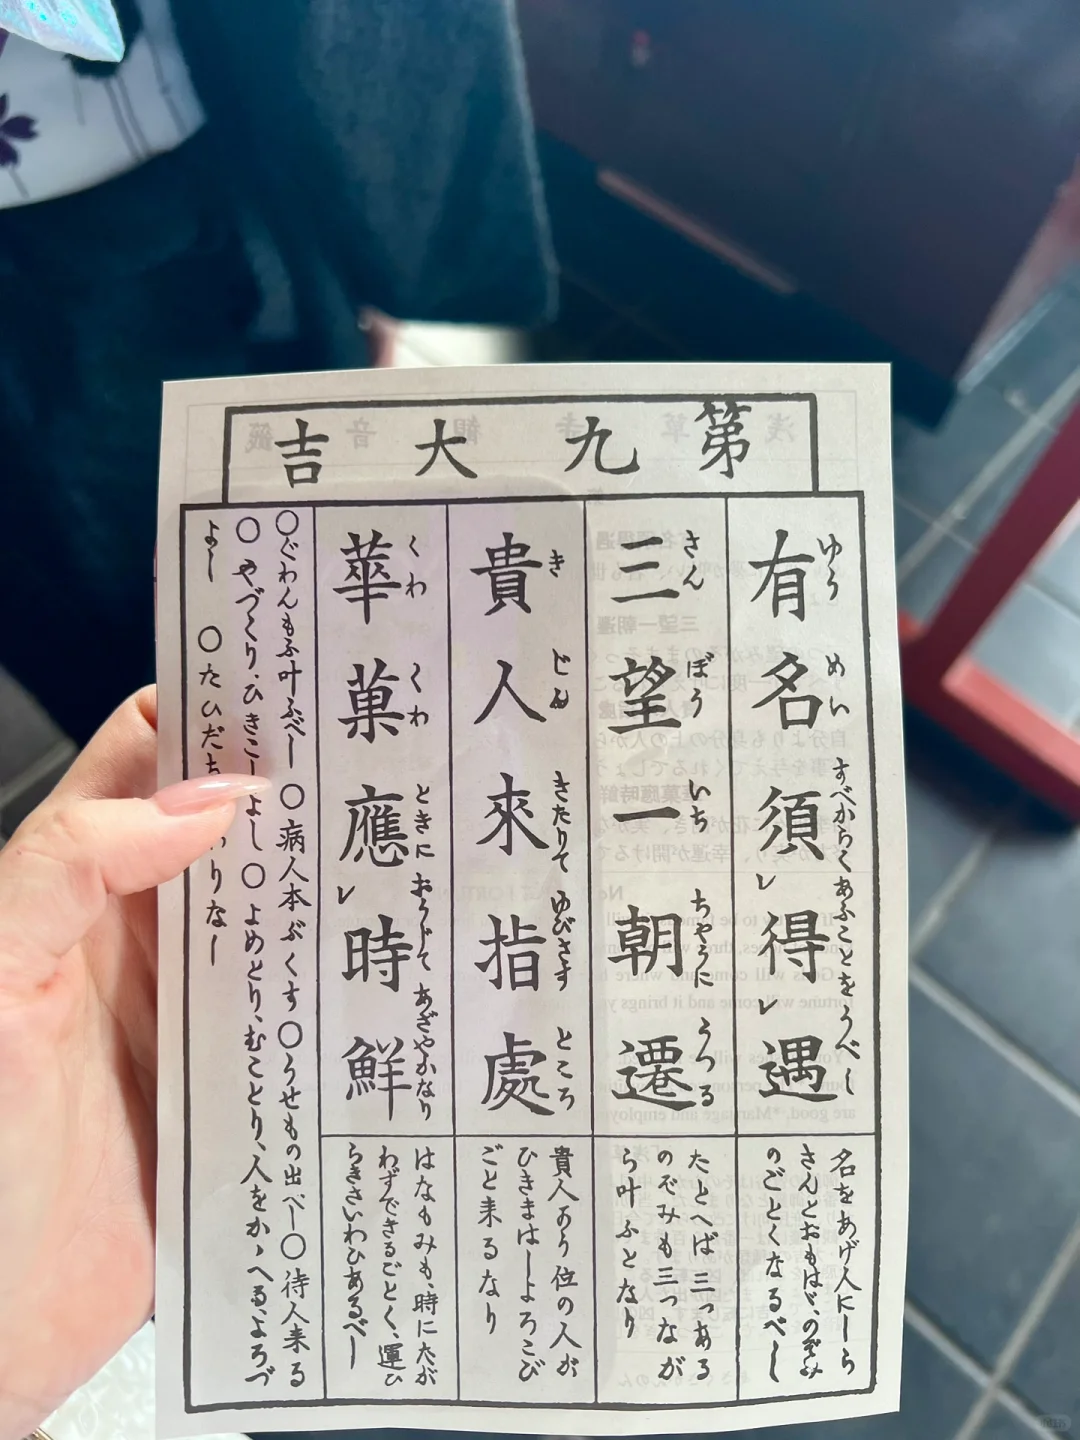 第九大吉
有名須得遇
ゆうめいすべからくあふことをうべし
名をあげ人にしら
さんとおもはゞ、のぞみ
のごとくなるべし
三望一朝遷
さんぼういちちやうにうつる
たとへば三つある
のぞみも三つなが
ら叶ふとなり
貴人來指處
きじんきたりてゆびさすところ
貴人あう位の人が
ひきまはしよろこび
ごと来るなり
華菓應時鮮
くわくわときにおうじてあざやかなり
はなもみも、時にたが
わずできるごとく、運ひ
らきさいわひあるべし
○ぐわんもふ叶ふべし ○病人本ぶくす ○うせもの出べし ○待人来る
○やづくり、ひきこしよし ○よめとり、むことり、人をかゝへる、よろづ
よし ○たびだち りなし